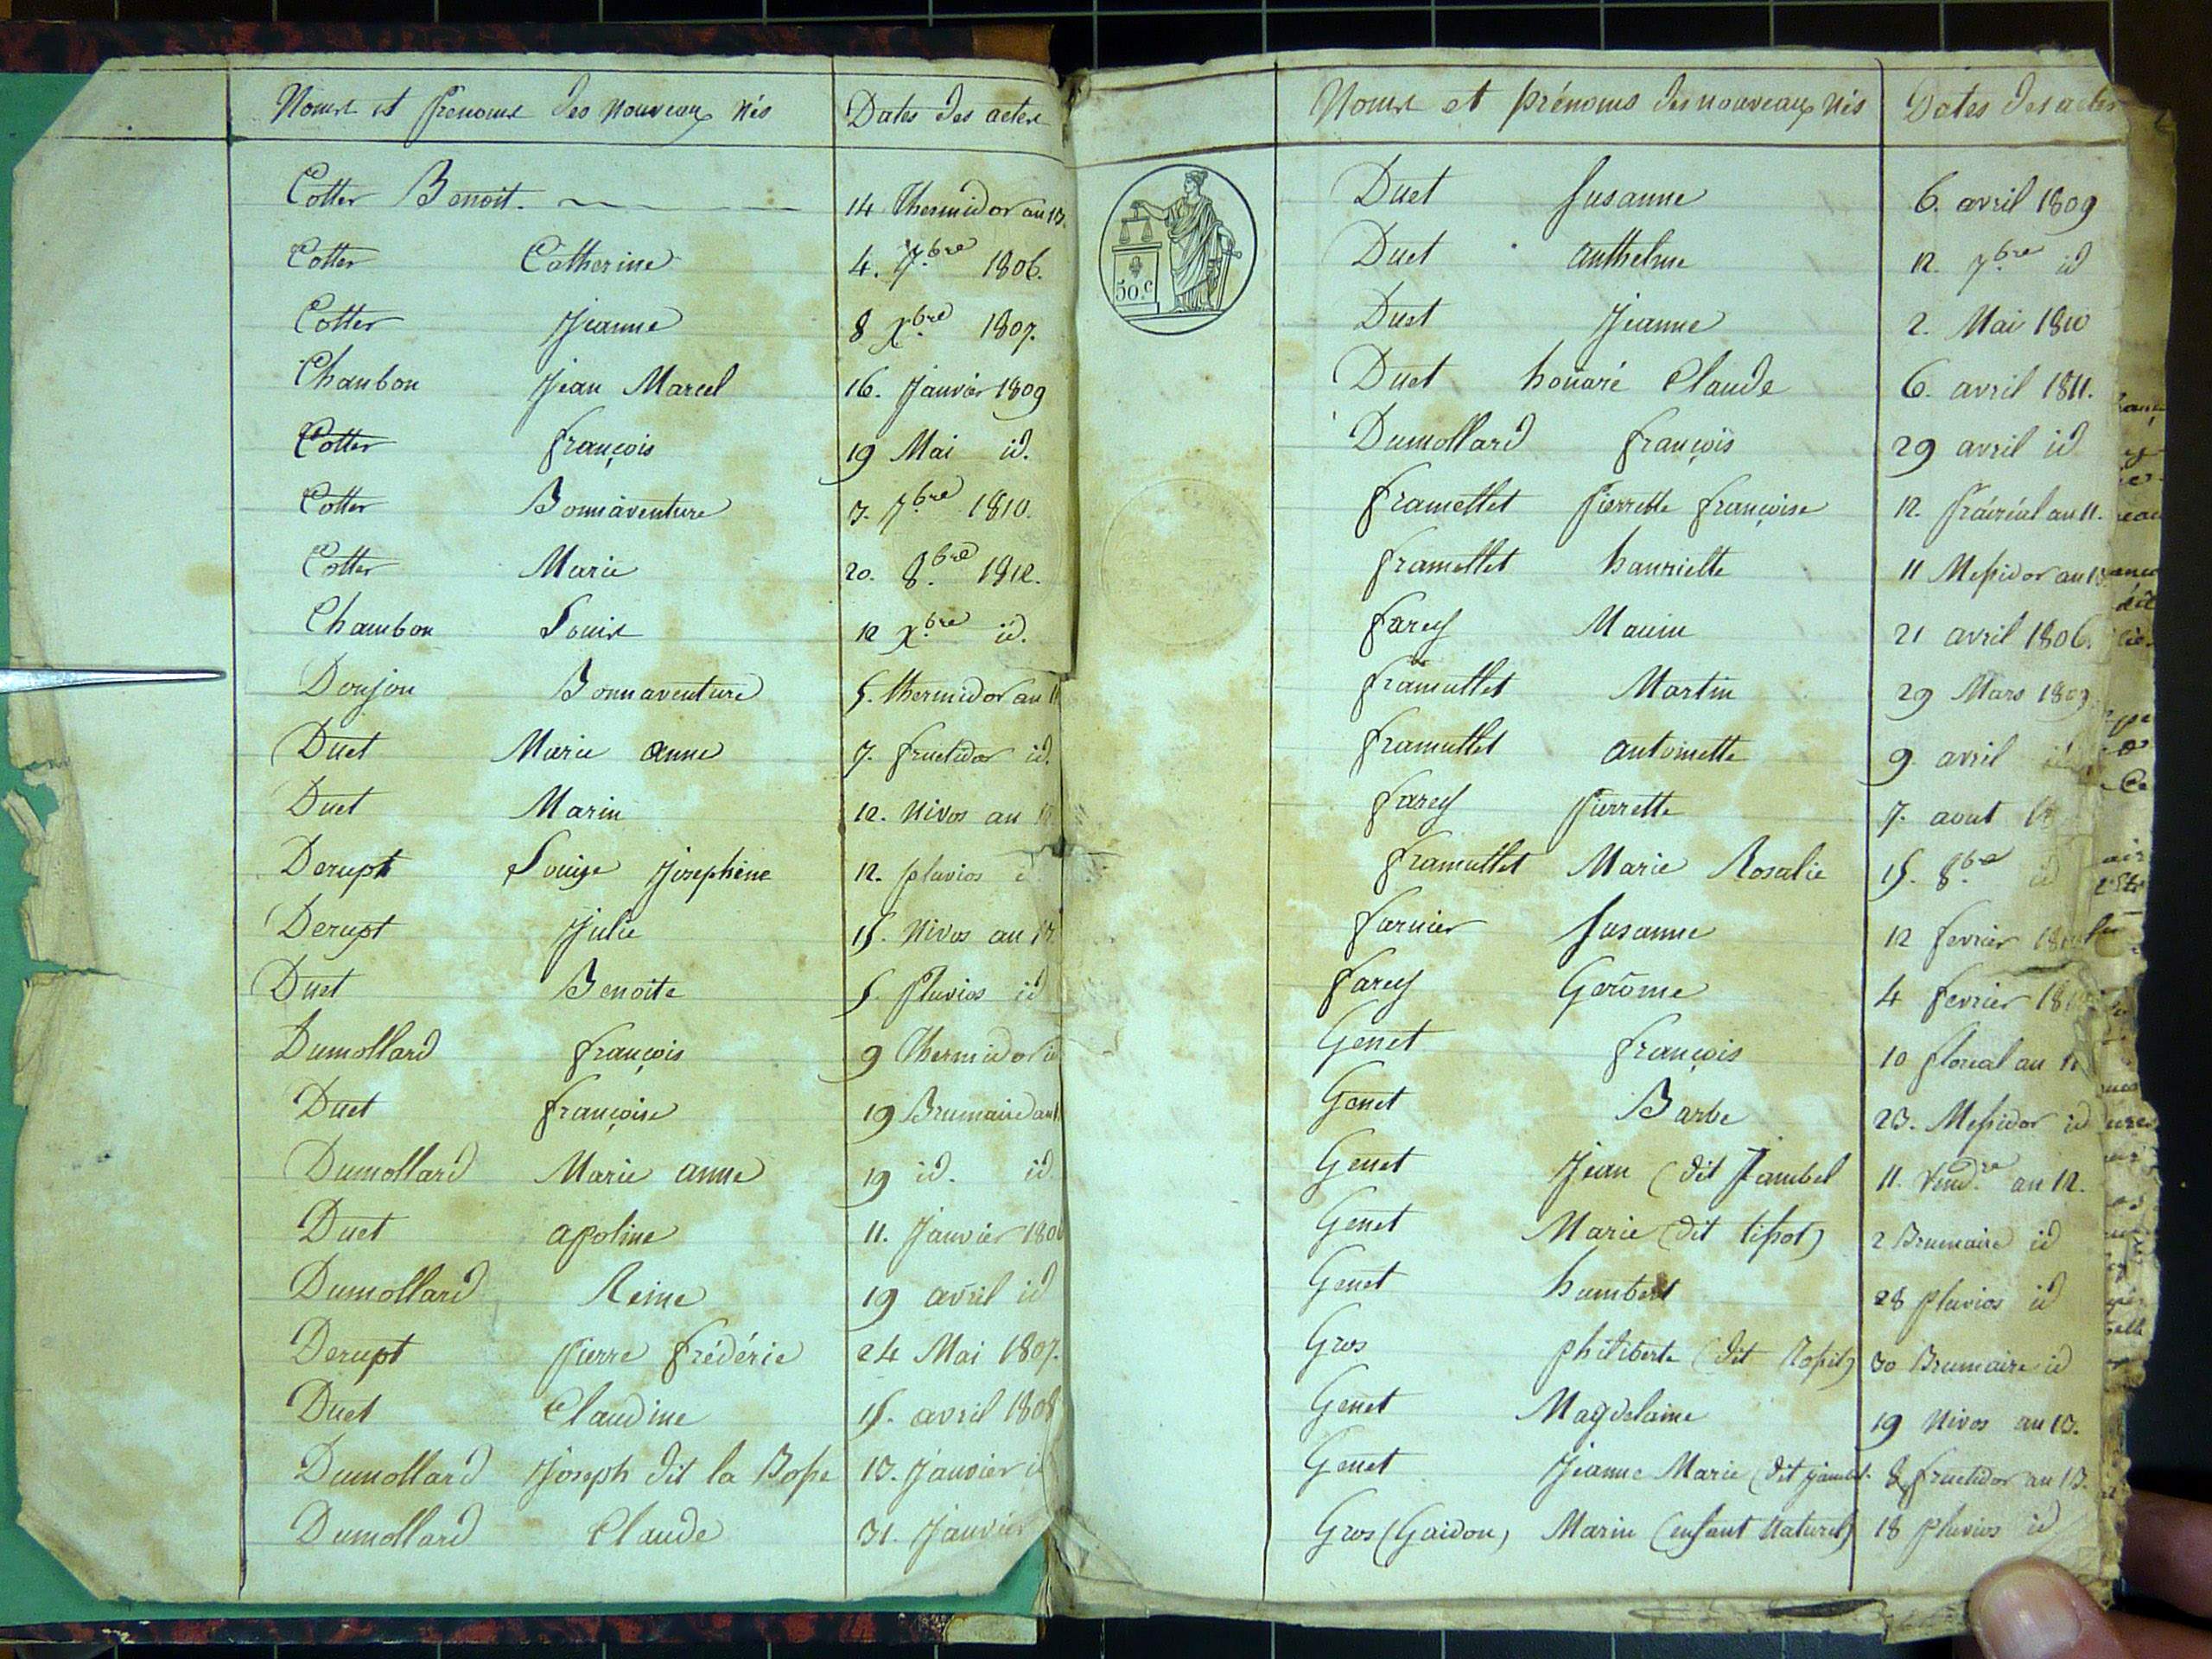 Noms et prénoms des nouveaux nés Dates des actes
Cotter Benoit. 14 Thermidor an 13.
Cotter Catherine 4. 7.bre 1806.
Cotter Jeanne 8 X.bre 1807.
Chambon Jean Marcel 16. Janvier 1809
Cotter françois 19 Mai id.
Cotter Bonnaventure 3. 7.bre 1810.
Cotter Marie 20. 8.bre 1812.
Chambon Louis 12 X.bre id.
Donjon Bonnaventure 5. thermidor an 11
Duet Marie anne 7. fructidor id.
Duet Marin 12. Nivos an
Derupt Louise Josephine 12. pluvios
Derupt Julie 15. Nivos an 13.
Duet Benoite 5. Pluvios id
Dumollard françois 9 Thermidor id
Duet françoise 19 Brumaire an
Dumollard Marie anne 19 id. id.
Duet apoline 11. Janvier 1806
Dumollard Reine 19 avril id
Derupt Pierre frédéric 24 Mai 1807.
Duet Claudine 15. avril 1808
Dumollard Joseph dit la Bosse 13. Janvier id
Dumollard Claude 31. Janvier
Noms et prénoms des nouveaux nés Dates des actes
50.c
Duet Susanne 6. avril 1809
Duet anthelme 12. 7.bre id
Duet Jeanne 2. Mai 1810
Duet honoré Claude 6. avril 1811.
Dumollard françois 29 avril id
framettet Pierrette françoise 12. Prairéal an 11.
framettet hanriette 11 Messidor an 13
farey Marin 21 avril 1806.
framettet Martin 29 Mars 1809
framettet antoinette 9 avril id
farey Pierrette 7. aout
framettet Marie Rosalie 15. 8.bre id
farnier Susanne 12 fevrier
farey Gerôme 4 fevrier
Genet françois 10 floreal an 11
Genet Barbe 23. Messidor id
Genet Jean (dit Jambel 11. Vend.re an 12.
Genet Marie (dit tissot) 2 Brumaire id
Genet humbert 28 pluvios id
Gros philiberte (dit 30 Brumaire id
Genet Magdelaine 19 Nivos an 13.
Genet Jeanne Marie (dit jambel. 8 fructidor an 13.
Gros (Gaidon) Marin (enfant Naturel) 18 pluvios id